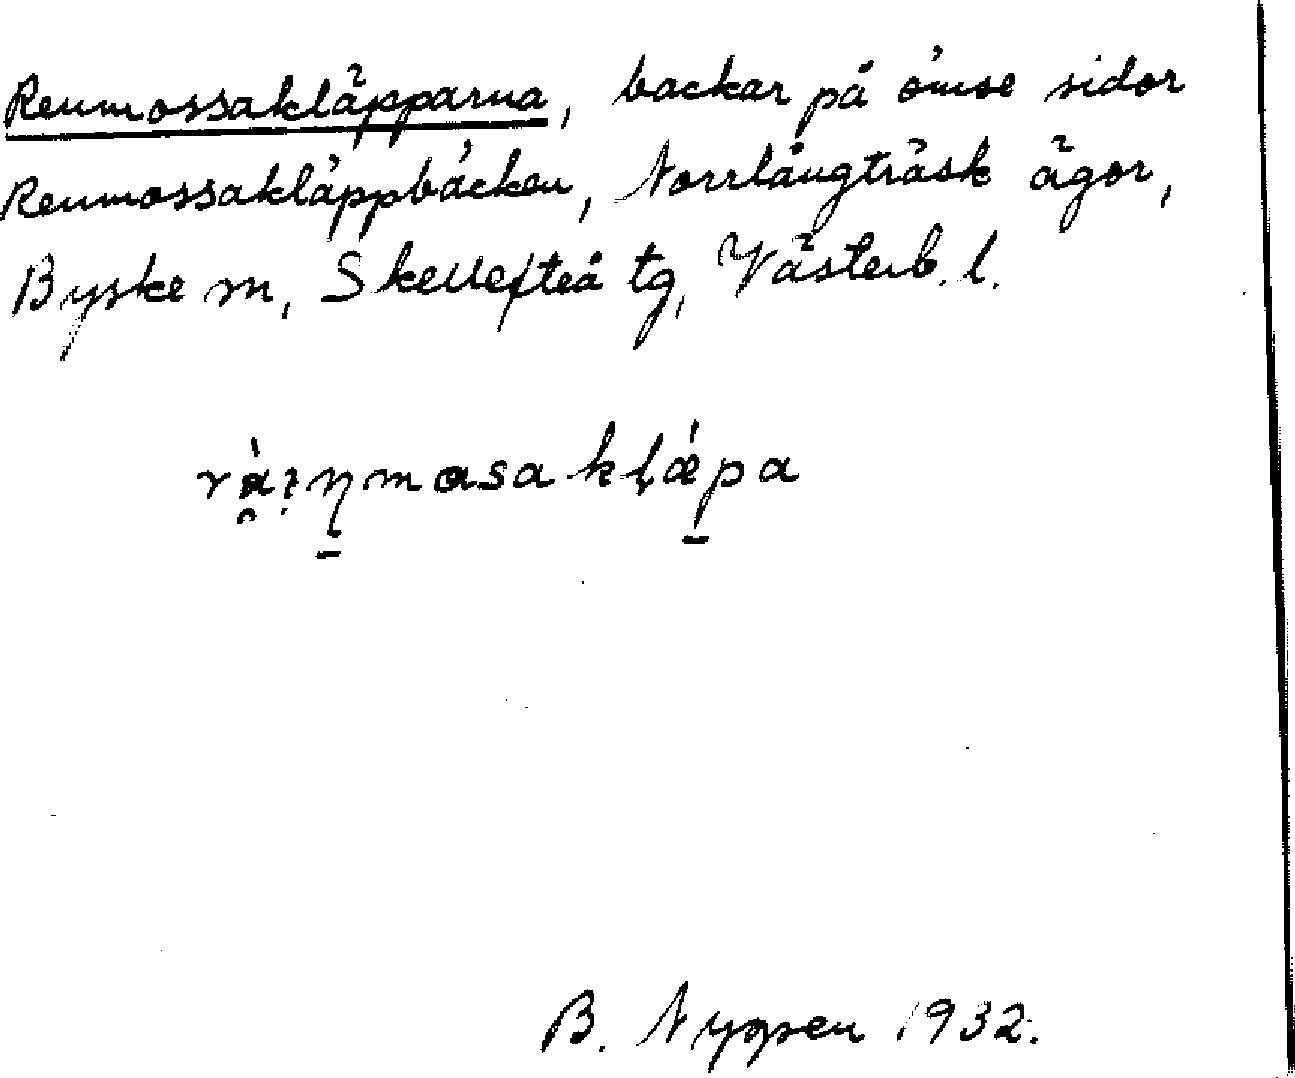 Renmossakläpparna, backar på ömse sidor
Renmossakläppbäcken, Norrlångträsk ägor,
Byske sn, Skellefteå tg, Västerb. l.
B. 1932.